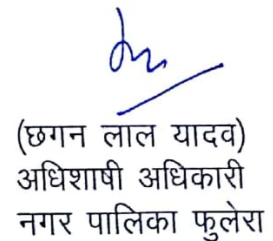 (छगन लाल यादव)
अधिशाषी अधिकारी
नगर पालिका फुलेरा